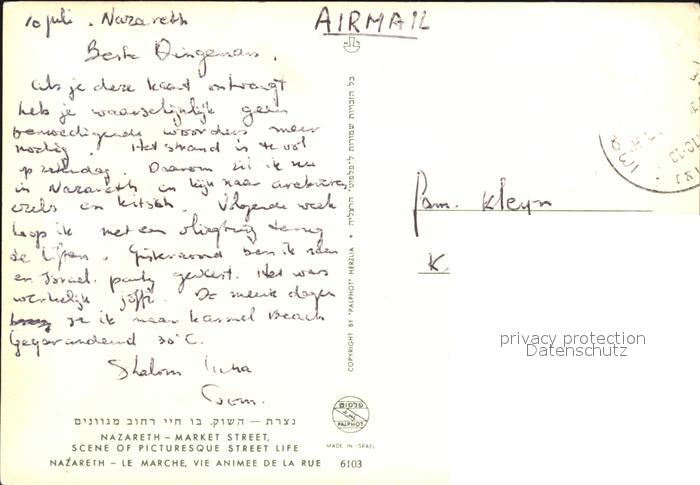 10 juli. Nazareth
AIRMAIL
Beste Dingeman,
Als je deze kaart ontvangt
heb je waarschijnlijk geen
bemoedigende woorden meer
nodig. Het strand is te vol
op zaterdag. Daarom zit ik nu
in Nazareth en kijk naar arabieren,
ezels en kitsch. Volgende week
hoop ik met een vliegtuig terug
te liften. Gisteravond ben ik naar
een Israel. party geweest. Het was
werkelijk joffi. De meeste dagen
ga ik naar Karmel Beach
Gegarandeerd 30°C.
Shalom
Fam. Kleyn
K.
כל הזכויות שמורות לפלפוט הרצליה
COPYRIGHT BY "PALPHOT" HERZLIA
privacy protection
Datenschutz
פלפוט
PALPHOT
MADE IN ISRAEL
נצרת — השוק, בו חיי רחוב מגוונים
NAZARETH – MARKET STREET,
SCENE OF PICTURESQUE STREET LIFE
NAZARETH – LE MARCHE, VIE ANIMEE DE LA RUE 6103